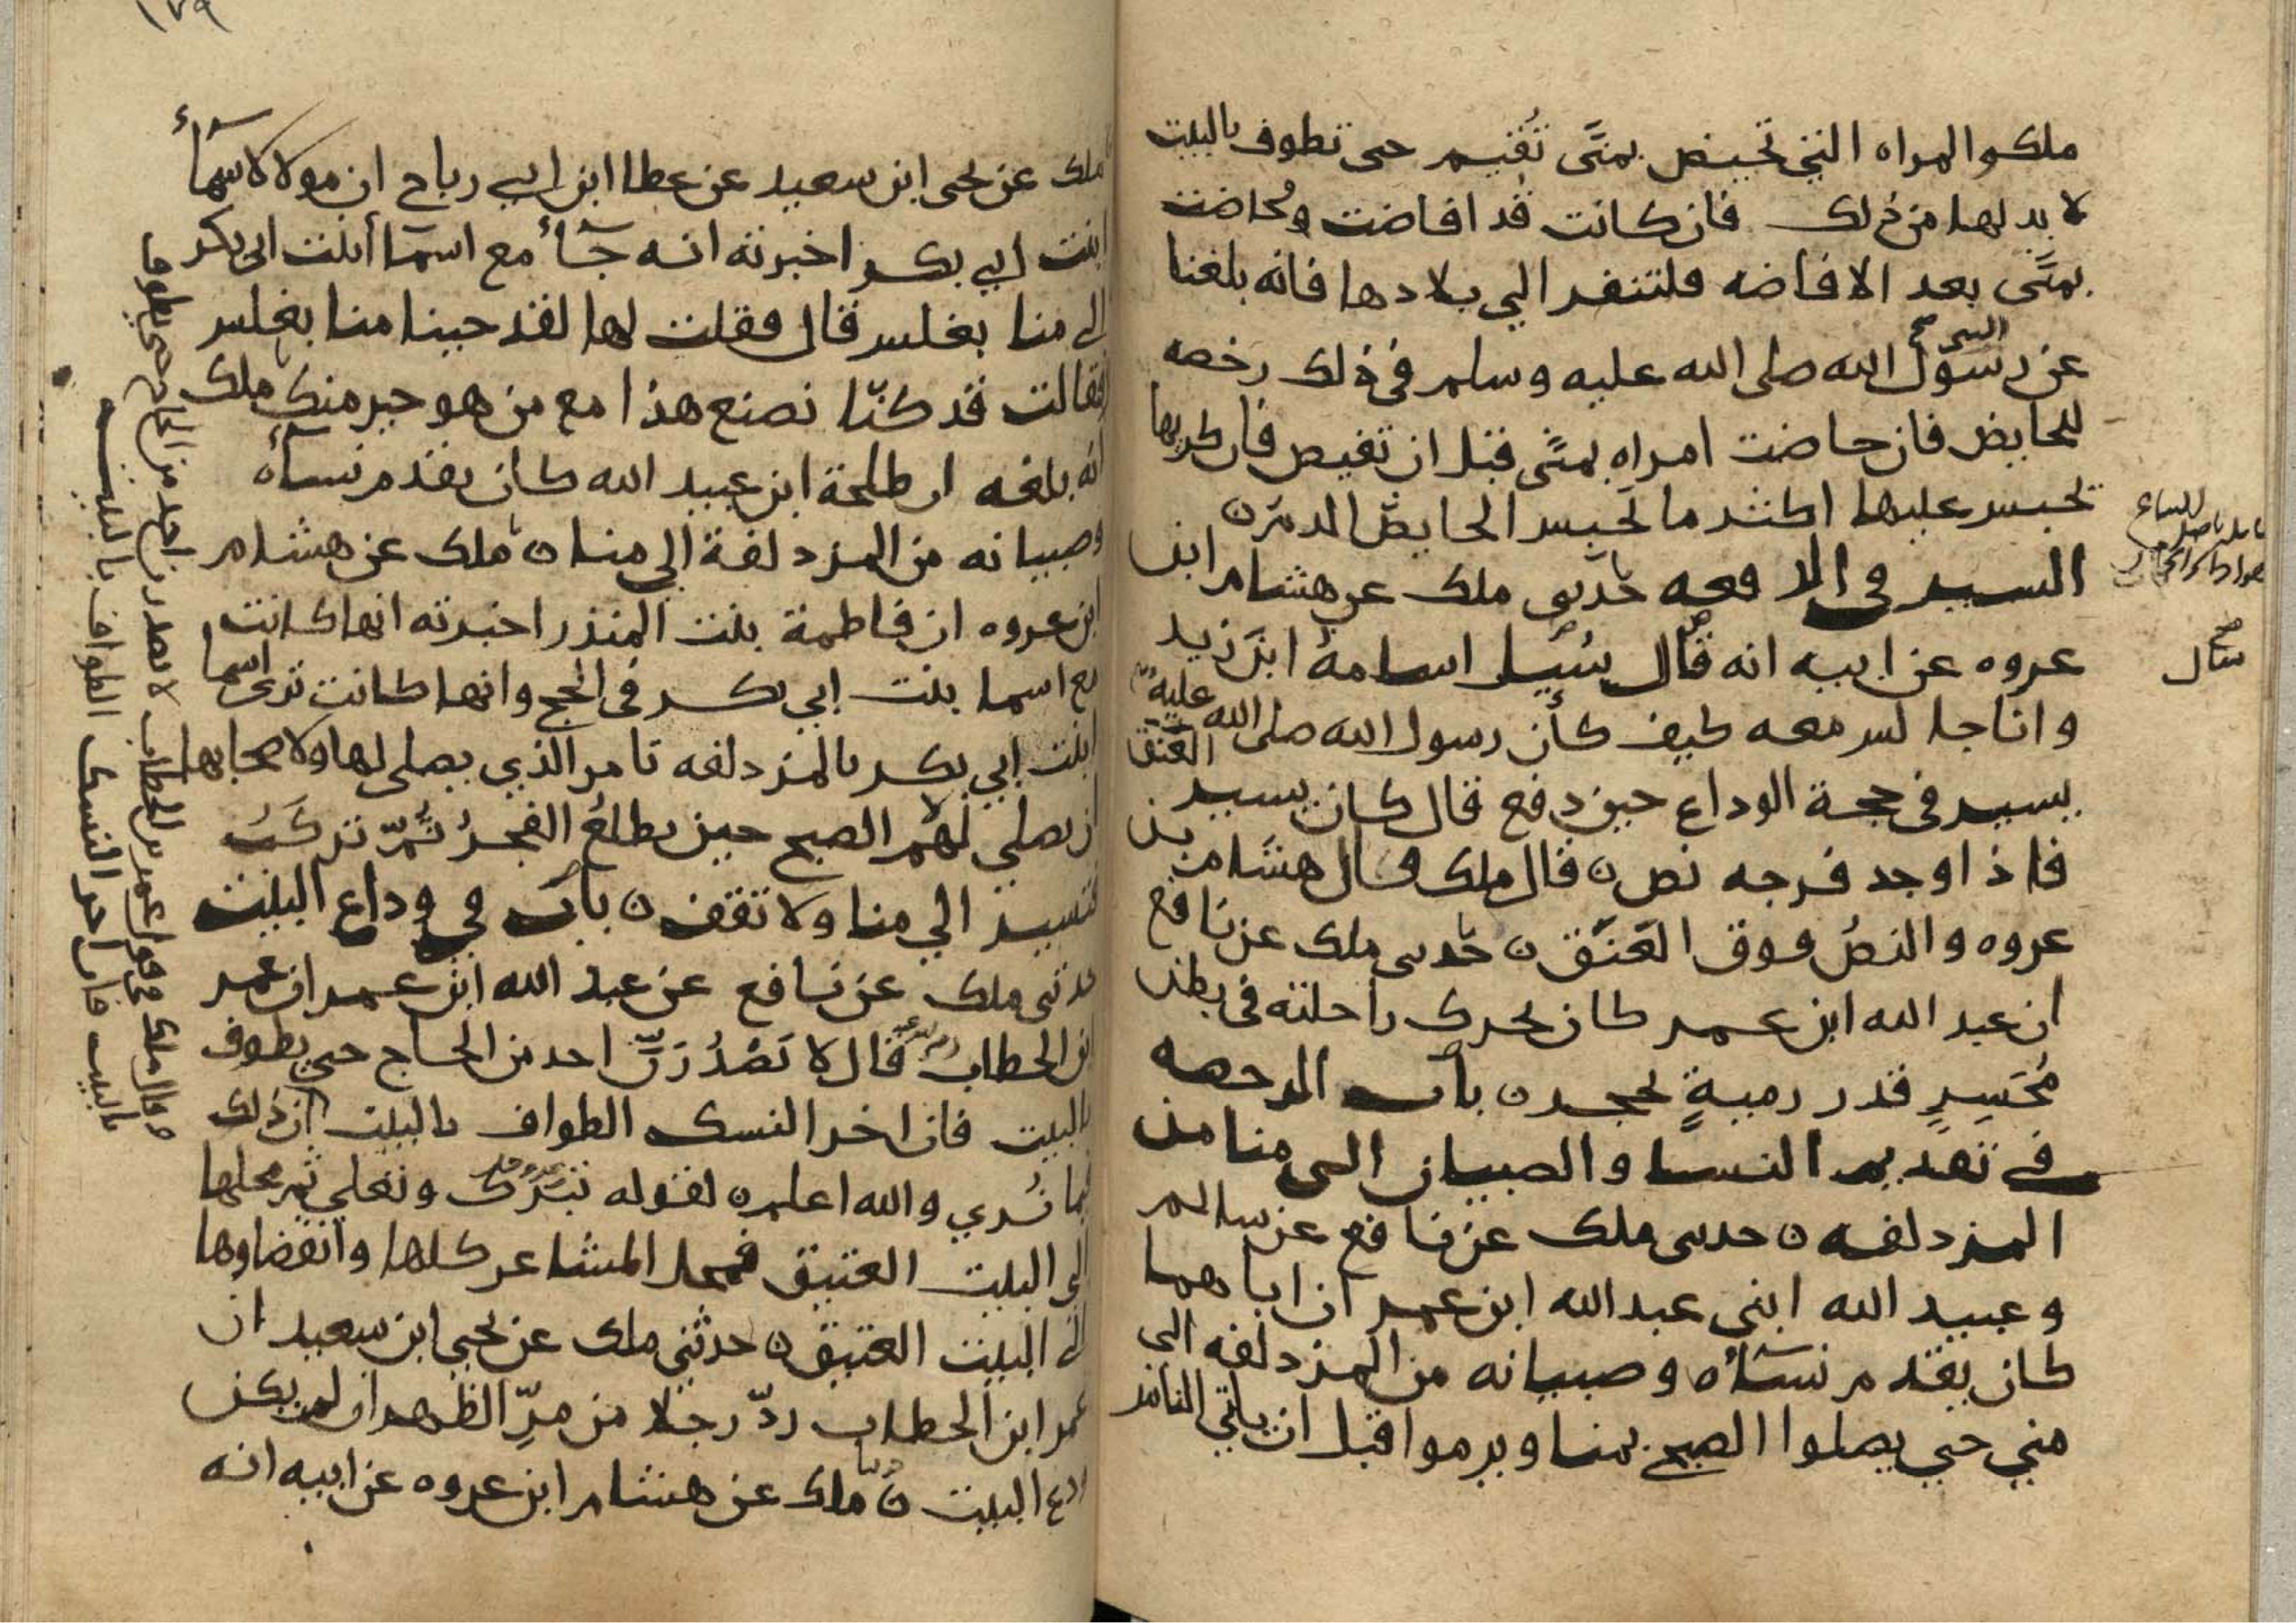 ملك والمراه التي تحيض بمنًى تُقيم حتى تطوف بالبيت
لا بد لها من ذلك فان كانت قد افاضت وحاضت
بمنًى بعد الافاضه فلتنفر الي بلادها فانه بلغنا
عن رسول الله صلى الله عليه وسلم في ذلك رخصه
للحايض فان حاضت امراه بمنًى قبل ان تفيض فان كريها
تحبس عليها اكثر ما تحبس الحايض الدم ن
السير في الدفعه حدثنى ملك عن هشام ابن
عروه عن ابيه انه قال سُيل اسامةُ ابنَ زيد
وانا جالس معه كيف كان رسول الله صلى الله عليه
يسير في حجة الوداع حين دفع قال كان يسير العَنَق
فاذا وجد فرجه نص ن قال ملك قال هشام بن
عروه والنصُ فوق العَنَق ن حدثنى ملك عن نافع
ان عبد الله ابن عمر كان يحرك راحلته في بطن
مُحَسِرٍ قدر رميةٍ بحجر ن باب الرخصه
في تقديم النسا والصبيان الى منا من
المزدلفه ن حدثنى ملك عن نافع عن سالم
وعبيد الله ابني عبد الله ابن عمر ان اباهما
كان يقدم نسآءه وصبيانه من المزدلفه الى
مني حتي يصلوا الصبح بمنا ويرموا قبل ان ياتي الناس
صح
سال
١٧٩
ملك عن يحيى ابن سعيد عن عطا ابن ابي رباح ان مولاة لاسمآء
ابنت ابي بكر اخبرته انه جآء مع اسمآء ابنت ابى بكر
الى منا بغلس قال فقلت لها لقد جينا منا بغلس
فقالت قد كنّا نصنع هذا مع من هو خير منك ملك
انه بلغه ان طلحة ابن عبيد الله كان يقدم نسآءه
وصبيانه من المزدلفة الي منا ن ملك عن هشام
ابن عروه ان فاطمة بنت المنذر اخبرته انها كانت
مع اسما بنت ابي بكر في الحج وانها كانت ترى اسما
ابنت ابي بكر بالمزدلفه تامر الذي يصلى لها ولاصحابها
ان يصلي لهُم الصبح حين يطلعُ الفجرُ ثُمّ تركَبُ
فتسير الي منا ولا تقف ن باب في وداع البيت
حدثنى ملك عن نافع عن عبد الله ابن عمر ان عمر
ابن الخطاب قال لا يَصْدُرَنّ احد من الحاج حتي يطوف
بالبيت فان اخر النسك الطواف بالبيت ان ذلك
فيما نُري والله اعلم ن لقوله تبَرَك وتعلي ثم محلها
الى البيت العتيق فمحل المشاعر كلها وانقضاوها
الى البيت العتيق ن حدثني ملك عن يحيي ابن سعيد ان
عمر ابن الخطاب ردّ رجلا من مرِّ الظهران لم يكن
ودع البيت ن ملك عن هشام ابن عروه عن ابيه انه
وقال ملك في قول عمر بن الخطاب لا يصدرن احد من الحاج حتى يطوف
بالبيت فان اخر النسك الطواف بالبيت